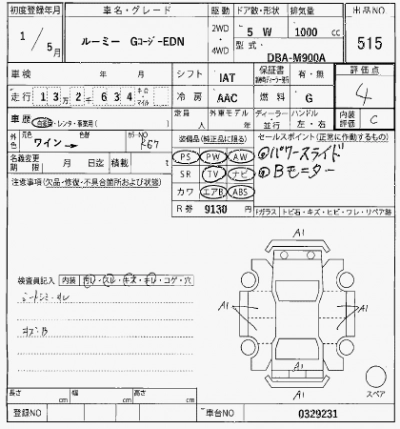 初度登録年月 車名・グレード 駆動 ドア数・形状 排気量 出品NO
1 / 5月 ルーミー Gコージ-EDN 2WD 4WD 5 W 1000 cc 515
型式
DBA-M900A
車検 年 月 シフト IAT 保証書 有・無 評価点
走行 13万2千634 キロ マイル 冷房 AAC 燃料 G 4
車歴 自家用・レンタ・事業用( ) 定員 人 外車モデル 年 ディーラー 並行 ハンドル 左・右 内装評価 C
外色 元色 ワイン→ カラーNO R67 装備品(純正品に限る) セールスポイント(正常に作動するもの)
名義変更期限 月 日迄 積載 t PS PW AW ①パワースライド
注意事項(欠品・修復・不具合箇所および状態) SR TV ナビ ②Bモニター
カワ エアB ABS
R券 9130 円 Fガラス トビ石・キズ・ヒビ・ワレ・リペア跡
A1
検査員記入 内装 汚レ・スレ・キズ・キレ・コゲ・穴
シートシミ・スレ
A1 A1
キズ・B
A1
スペア
長さ cm 幅 cm 高さ cm
登録NO 車台NO 0329231